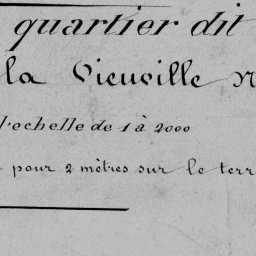 quartier dit
la Vieuville
l'echelle de 1 à 2000
pour 2 mètres sur le terr